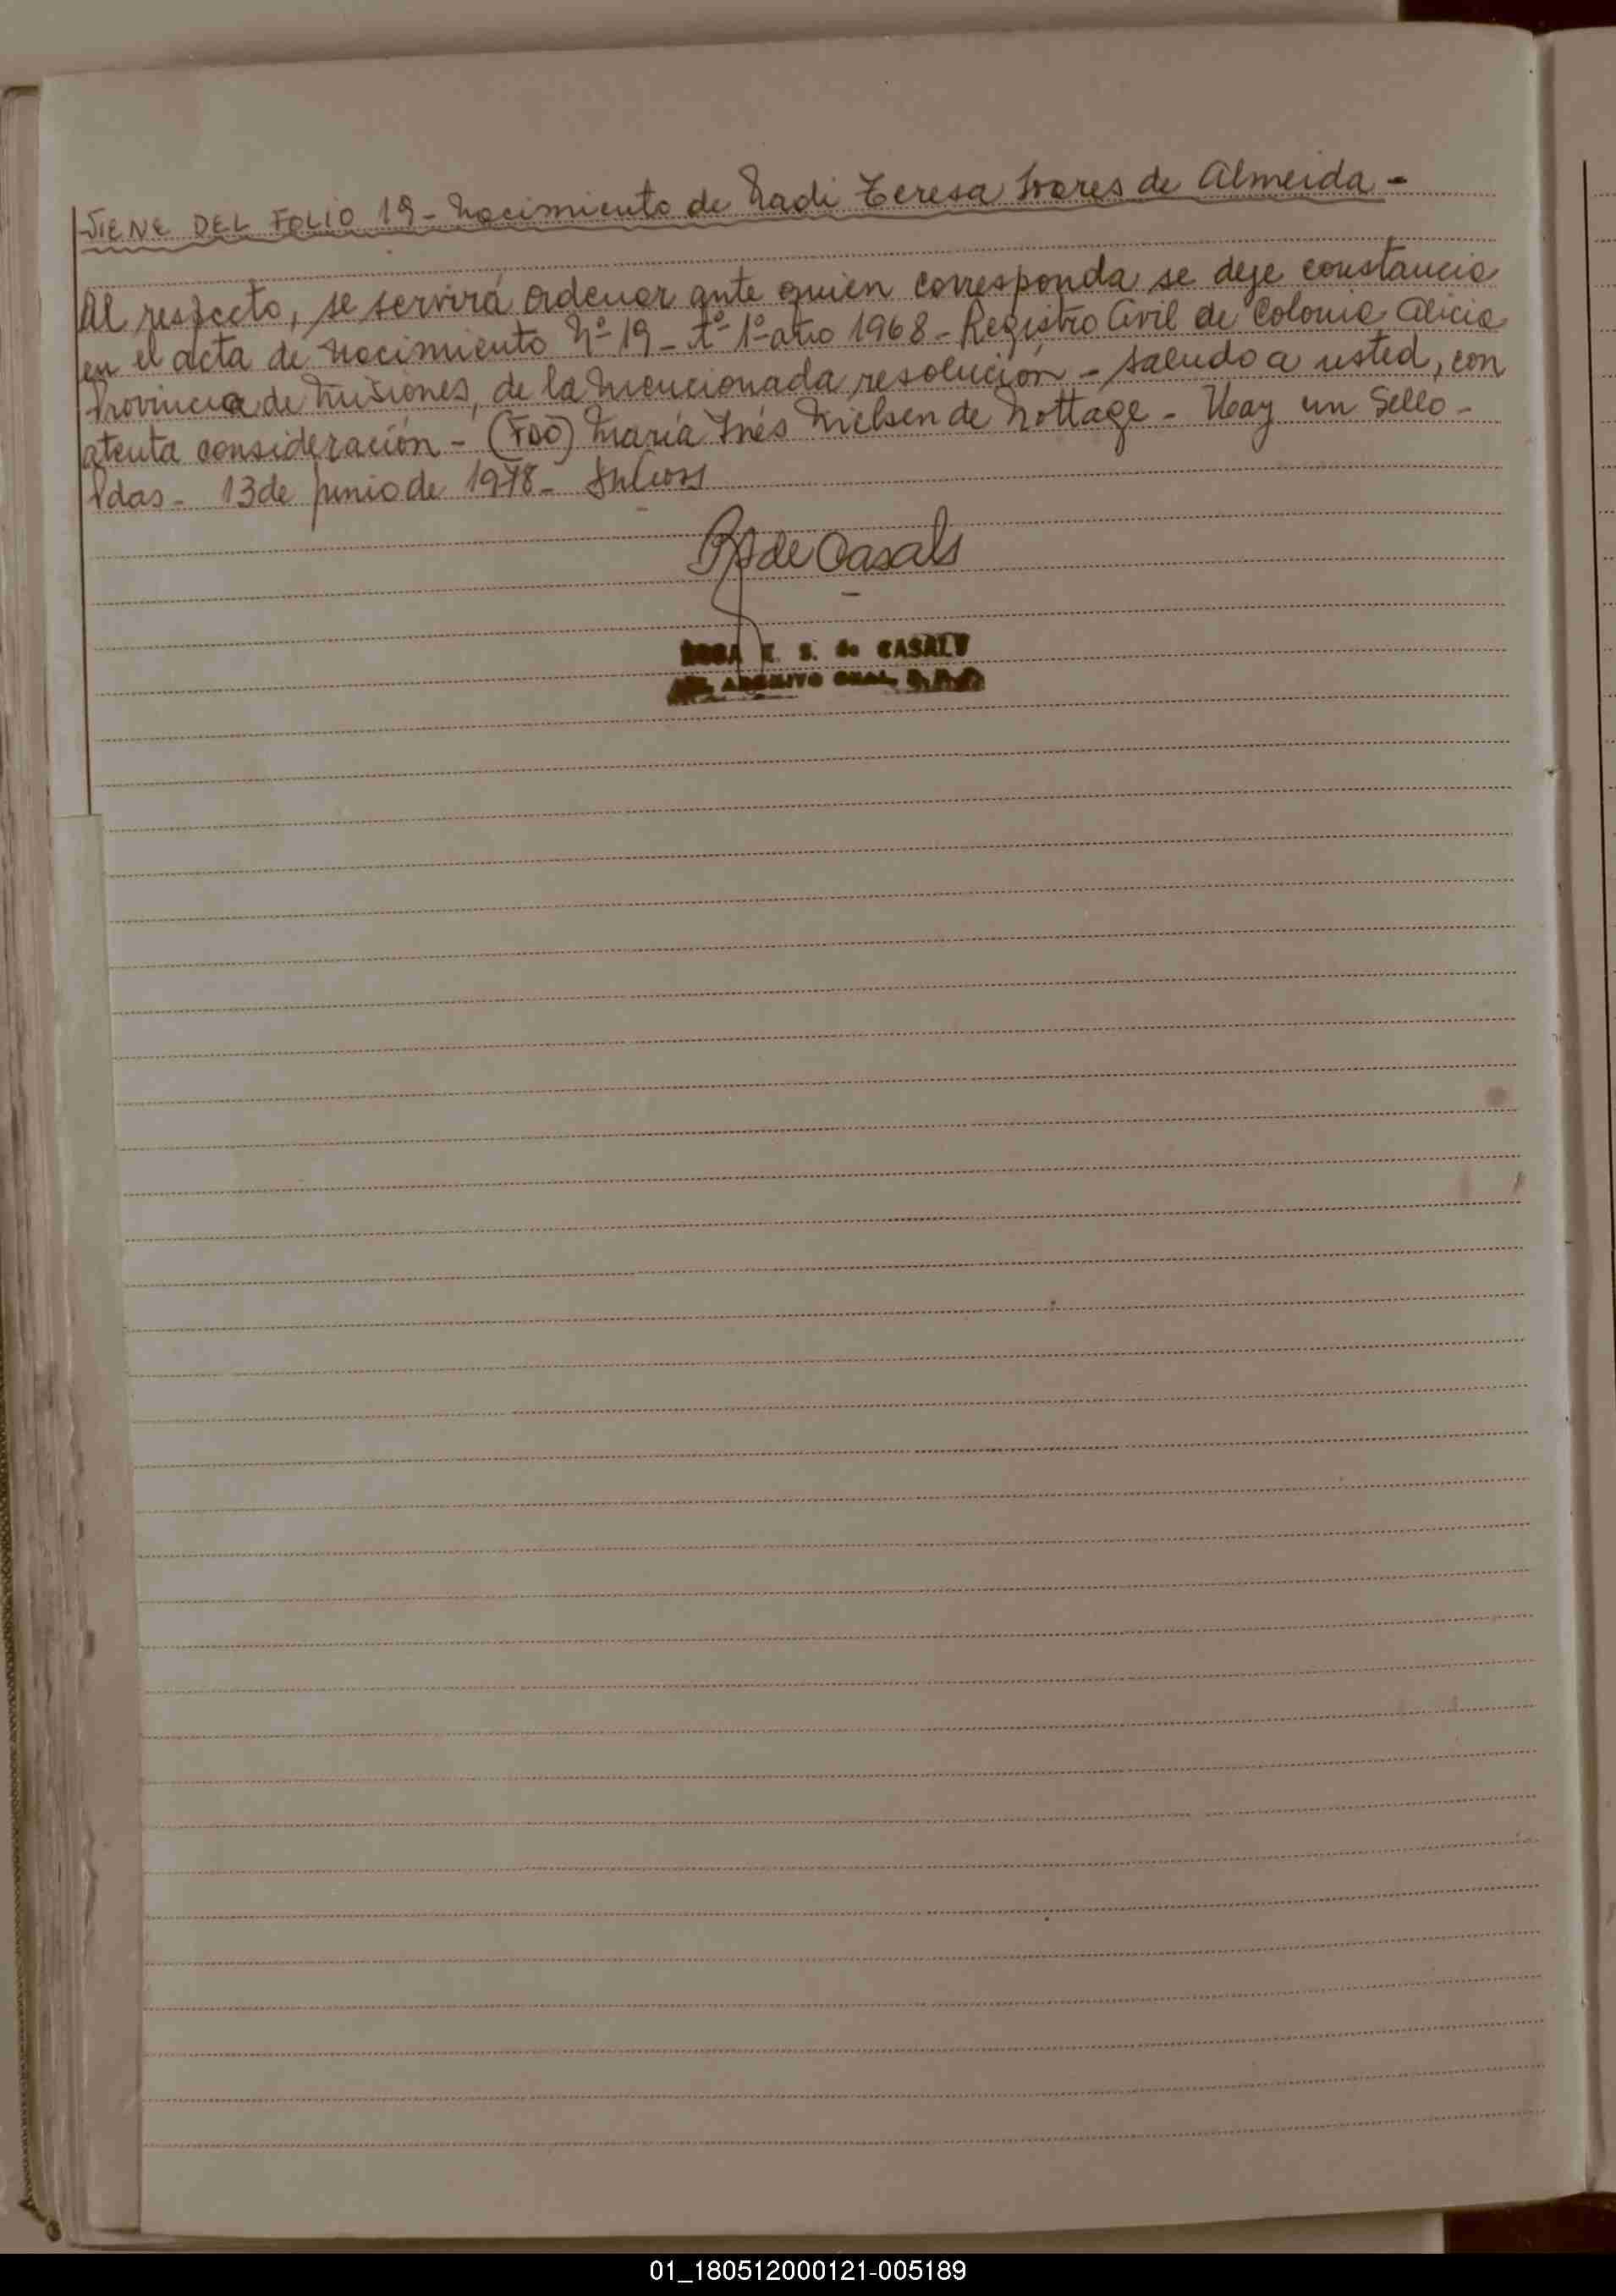 VIENE DEL FOLIO 19 - Nacimiento de Nadi Teresa Soares de Almeida -
Al respecto, se servirá ordenar ante quien corresponda se deje constancia
en el acta de nacimiento Nº 19 - tº 1º año 1968 - Registro Civil de Colonia Alicia
Provincia de Misiones, de la mencionada resolución - Saludo a usted, con
atenta consideración - (FDO) María Inés Nielsen de Nottage - Hay un Sello -
Pdas - 13 de junio de 1978 -
R de Casals
ROSA E. S. de CASALS
ARCHIVO GRAL.
01_180512000121-005189